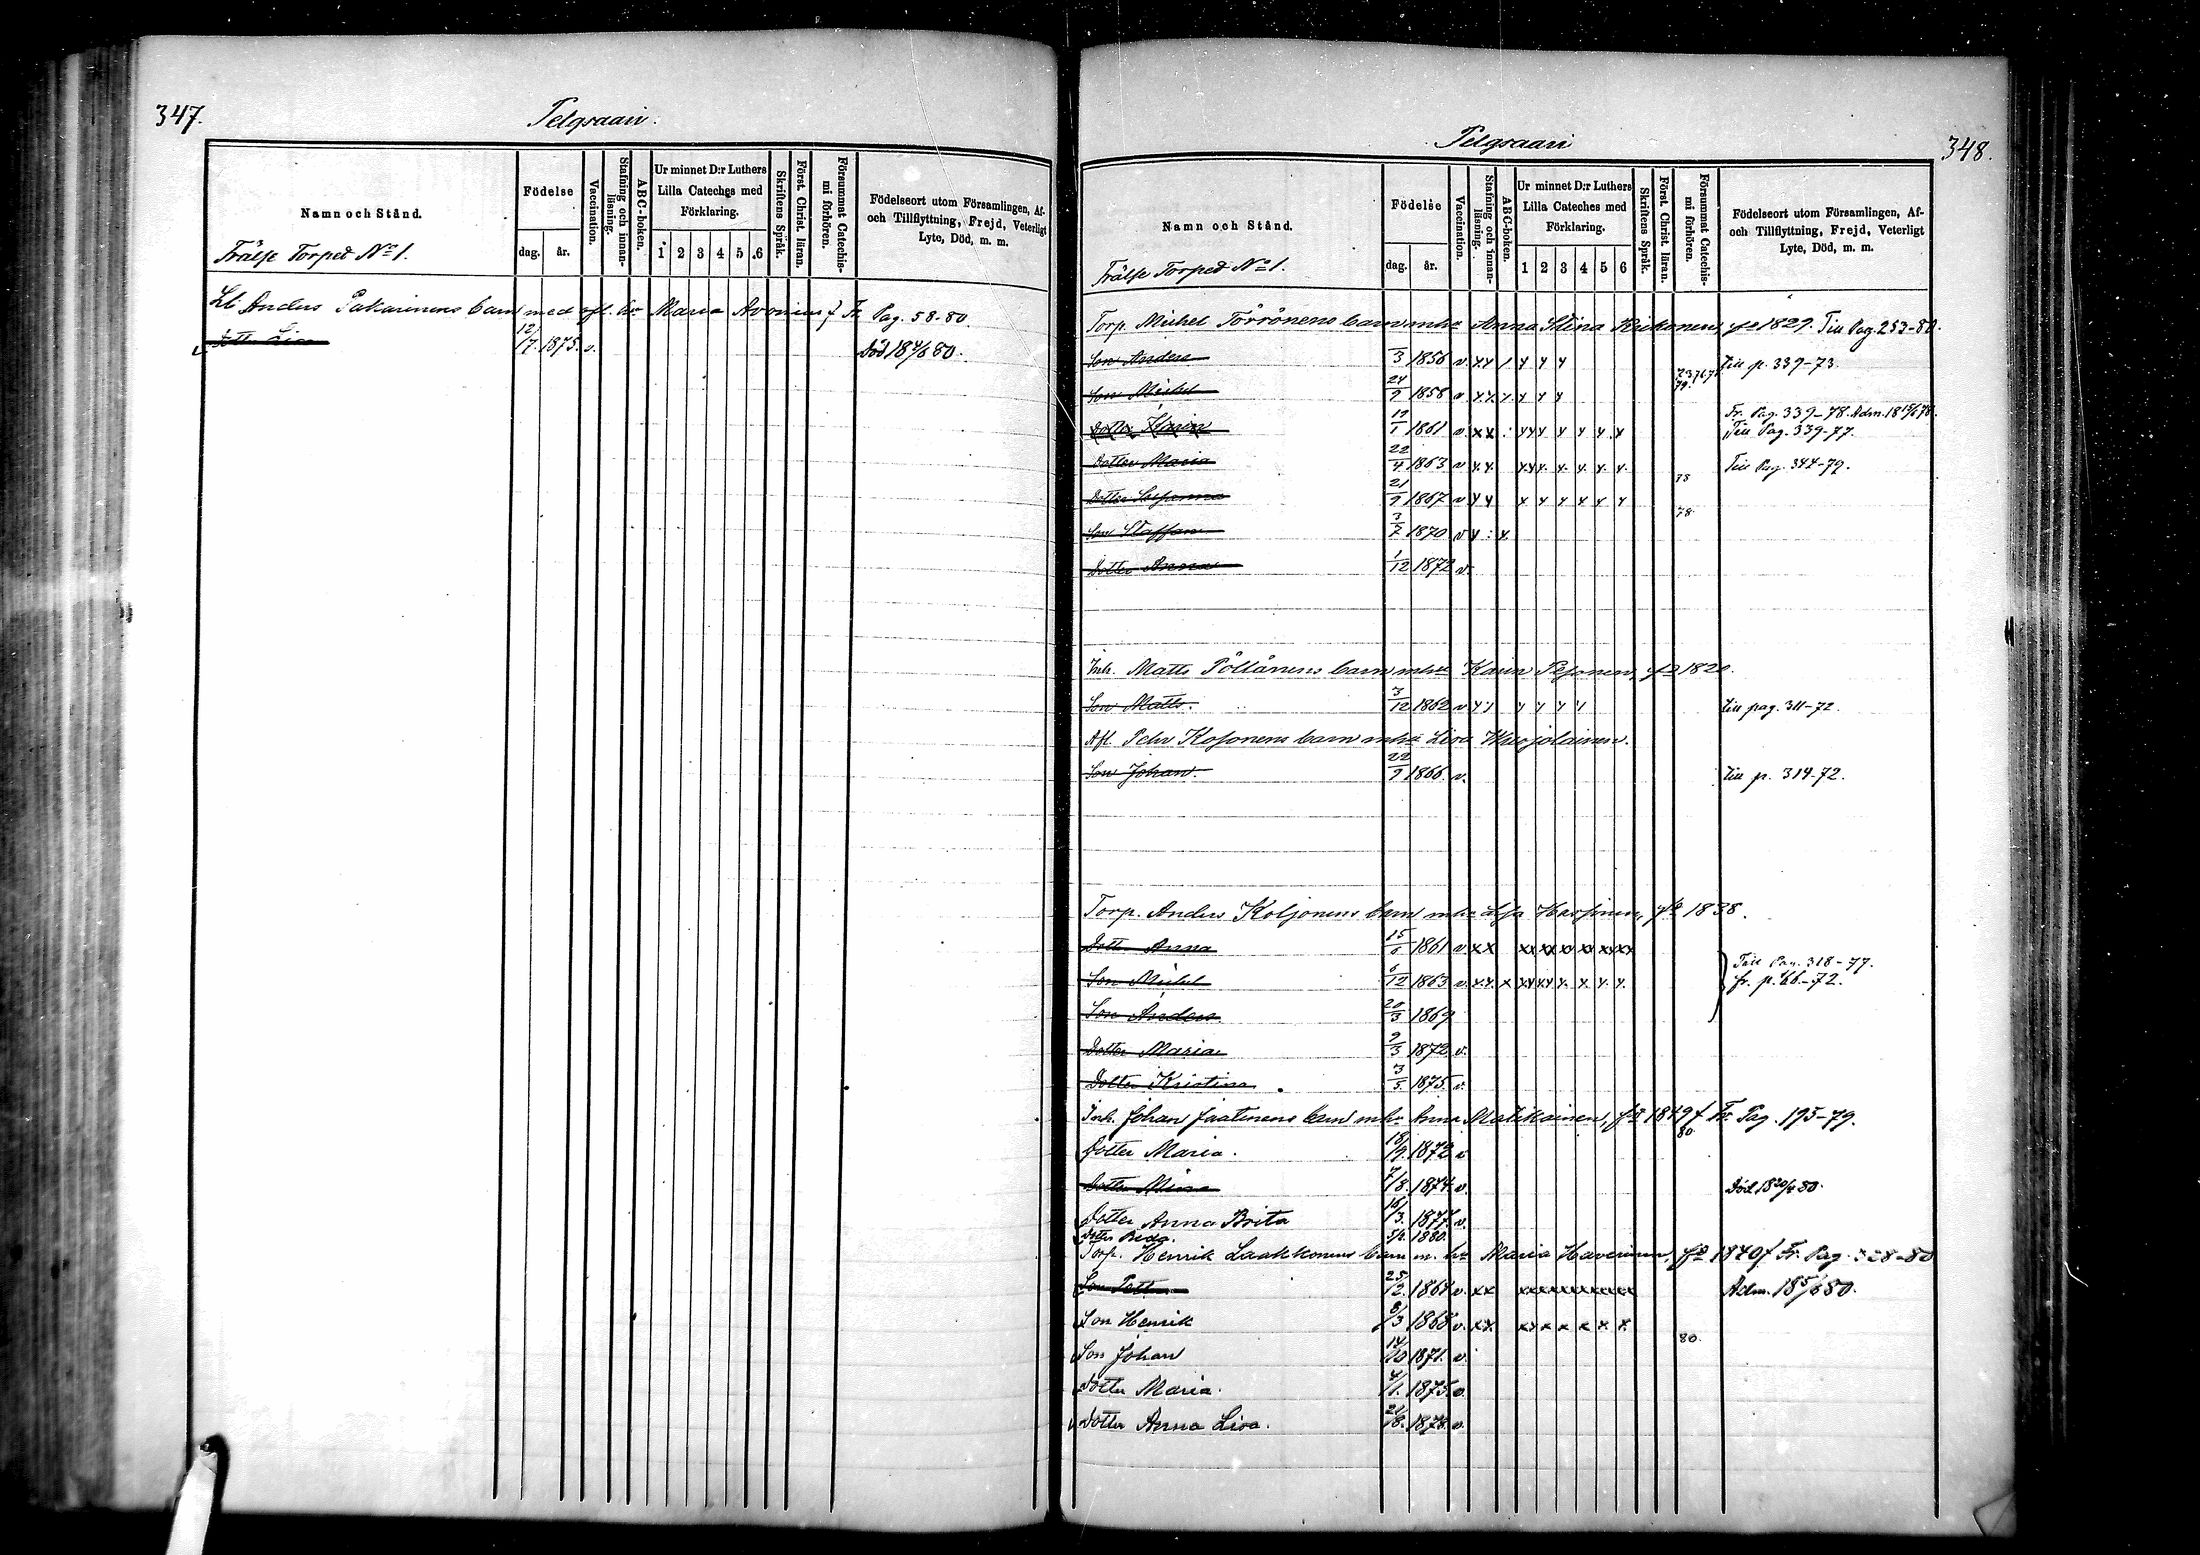 347.
Pelgsaari.
Namn och Stånd.
Frälse Torped No 1.
Födelse
dag. år.
Vaccination.
Stafning och innanläsning.
ABC-boken.
Ur minnet D:r Luthers Lilla Cateches med Förklaring.
1 2 3 4 5 6
Skriftens Språk.
Först. Christ. läran.
Försummat Catechismi förhören.
Födelseort utom Församlingen, Af- och Tillflyttning, Frejd, Veterligt Lyte, Död, m. m.
Lb Anders Pakarinens barn med afl. hu Maria Avonius f Fr. Pag. 58-80.
Dotter Lisa 12/7. 1875. v. Död 18 80.
348.
Pelgsaari
Namn och Stånd.
Frälse Torped No 1.
Födelse
dag. år.
Vaccination.
Stafning och innanläsning.
ABC-boken.
Ur minnet D:r Luthers Lilla Cateches med Förklaring.
1 2 3 4 5 6
Skriftens Språk.
Först. Christ. läran.
Försummat Catechismi förhören.
Födelseort utom Församlingen, Af- och Tillflyttning, Frejd, Veterligt Lyte, Död, m. m.
Torp. Michel Torrönens barn m hu Anna Stina Kukonen, 1829. Till Pag 253-80.
Son Anders 3 1856 v. Till p. 339-73.
Son Michel 24/9 1858 v
Fr. Pag. 339-78. Adm. 18 78.
Dotter Karin 19/1 1861 v. Till Pag. 339-77.
Dotter Maria 22/4 1863 v Till Pag. 344-79.
78
Dotter Susanna 21/9 1867 v
78.
Son Staffan 3/7 1870 v
Dotter Anna 1/12 1872 v.
Inh. Matts Pöllänens barn m hu Karin Pesonen, 1820.
Son Matts. 3/12 1862 v Till pag. 311-72.
Afl. Pehr Kosonens barn m hu Lisa Kuojolainen.
Son Johan. 22/9 1866. v. Till p. 314-72.
Torp. Anders Koljonens barn m hu Lisa Harjonen, 1838.
Dotter Anna 15/6 1861 v. xx
Till Pag. 318-77.
Son Michel 6/12 1863 v. fr. p. 66-72.
Son Anders 20/3 1869
Dotter Maria 9/3 1872 v.
Dotter Kristina 3/5. 1875. v.
Inh. Johan Jaatinens barn m hu Anna Matikainen, 1849 f Fr. Pag. 195-79.
80.
Dotter Maria. 18/9. 1872 v
Dotter Mina 7/8. 1874. v. Död 18 80.
Dotter Anna Brita 16/3. 1877. v.
Dotter Beda. 1880.
Torp. Henrik Laakkonens barn m. hu Maria Haverinen, 1840 f Fr. Pag. 328-80
Son Petter 25/12. 1864 v. xx Adm. 18 80.
Son Henrik 8/3 1868 v. xx
80.
Son Johan 14/10 1871. v.
Dotter Maria. 4/1. 1875. v.
Dotter Anna Lisa. 21/8. 1878. v.